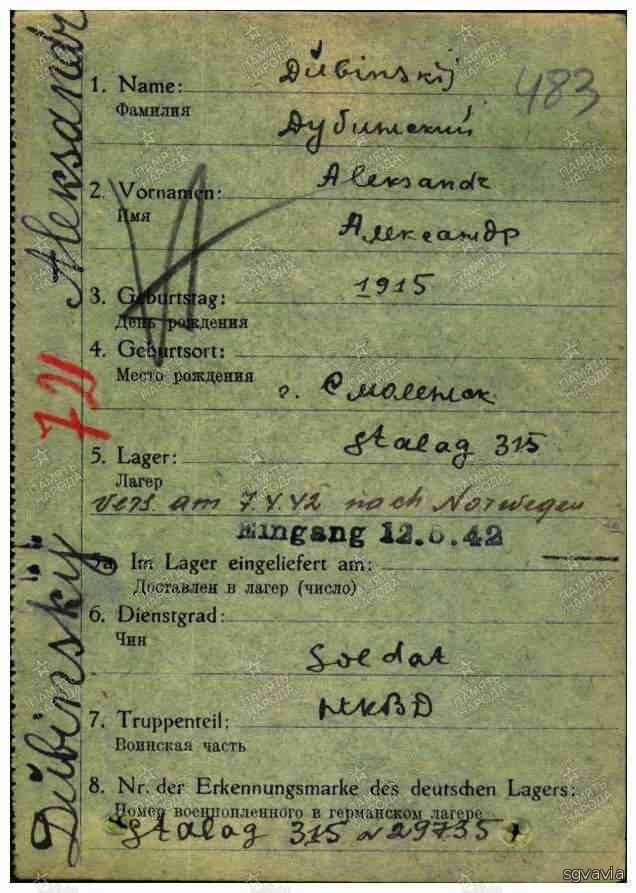 Dŭbinskij Aleksandr
721
1. Name: Dŭbinskij 483
Фамилия
Дубинский
2. Vornamen: Aleksandr
Имя
Александр
3. Geburtstag: 1915
День рождения
4. Geburtsort:
Место рождения
г. Смоленск
5. Lager: Stalag 315
Лагер
vers. am 7.V.42 nach Norwegen
Eingang 12.5.42
Im Lager eingeliefert am:
Доставлен в лагер (число)
6. Dienstgrad:
Чин
Soldat
НКВД
7. Truppenteil:
Воинская часть
8. Nr. der Erkennungsmarke des deutschen Lagers:
Номер военнопленного в германском лагере
Stalag 315 N 29735
ПАМЯТЬ НАРОДА
sgvavia